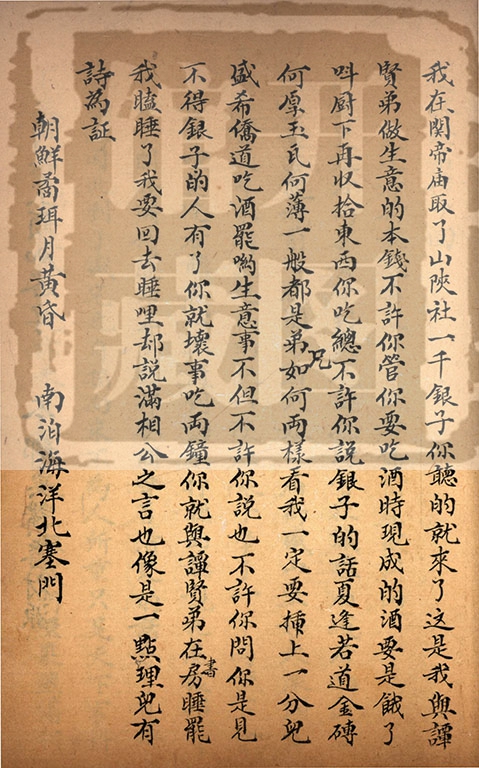 我在関帝庙取了山陝社一千銀子你聽的就來了这是我與譚
賢弟做生意的本錢不許你管你要吃酒時現成的酒要是餓了
呌厨下再収拾東西你吃總不許你說銀子的話夏逢若道金磚
何厚玉瓦何薄一般都是弟兄如何両樣看我一定要揷上一分兒
盛希僑道吃酒罷喲生意事不但不許你說也不許你問你是見
不得銀子的人有了你就壞事吃両鐘你就與譚賢弟在書房睡罷
我瞌睡了我要回去睡哩却說滿相公之言也像是一點理兒有
詩為証
朝鮮矞珥月黃昏 南泊海洋北塞門